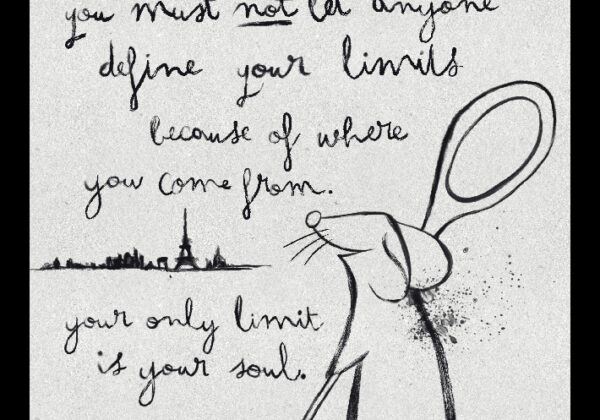 you must not let anyone
define your limits
because of where
you come from.
your only limit
is your soul.